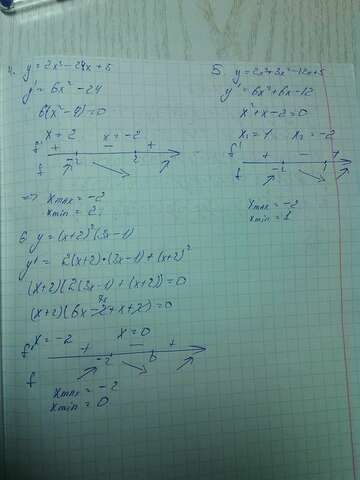 4. y = 2x³ - 24x + 5
y' = 6x² - 24
6(x² - 4) = 0
x = 2 x = -2
f' + - +
f -2 2
=> xmax = -2
xmin = 2
5. y = 2x³ + 3x² - 12x + 5
y' = 6x² + 6x - 12
x² + x - 2 = 0
x₁ = 1 x₂ = -2
f' + - +
f -2 1
xmax = -2
xmin = 1
6 y = (x+2)²(3x-1)
y' = 2(x+2)·(3x-1)+(x+2)²
(x+2)(2(3x-1)+(x+2)) = 0
(x+2)(6x-2+x+2) = 0
7x
x = -2 x = 0
f' + - +
-2 0
f
xmax = -2
xmin = 0